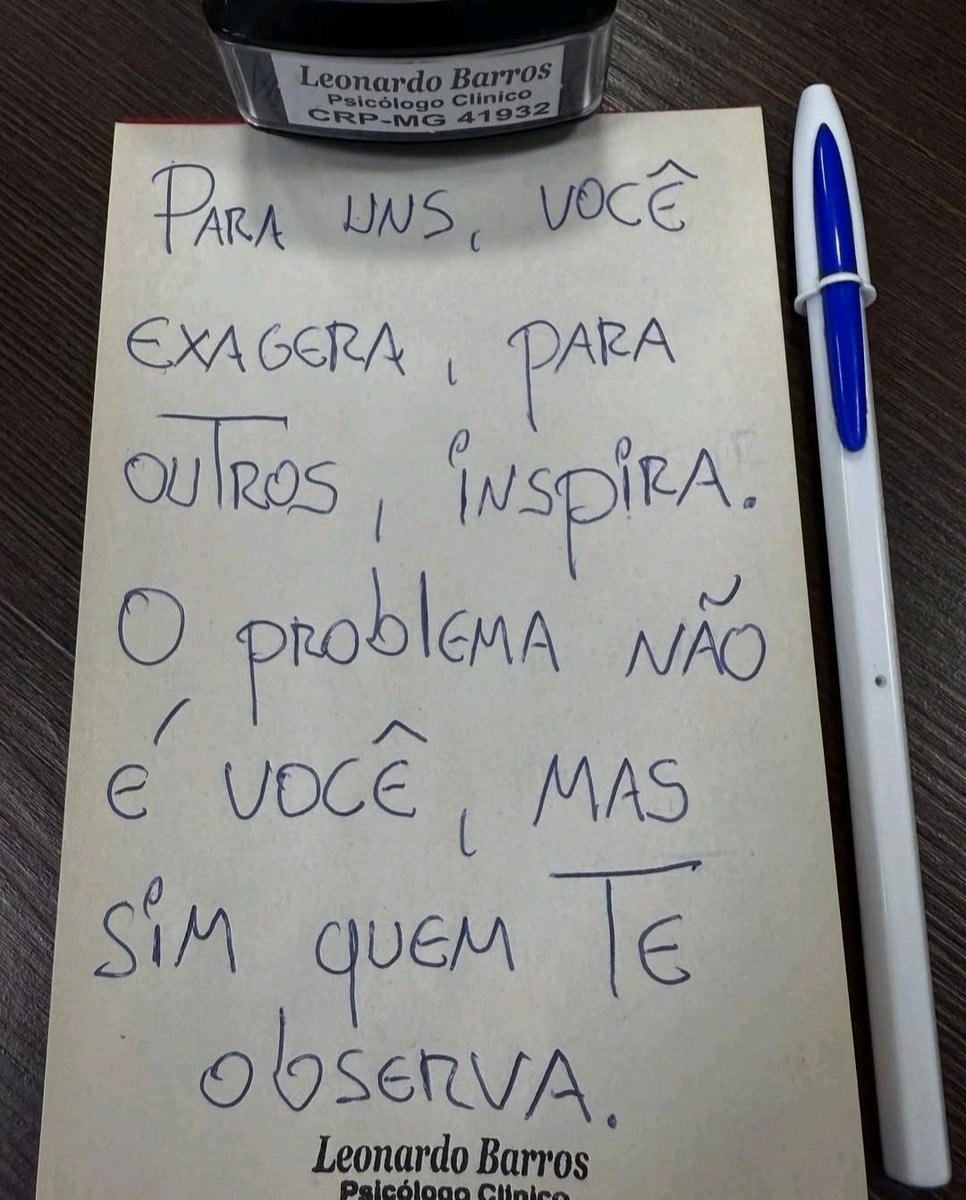 Leonardo Barros
Psicólogo Clinico
CRP-MG 41932
PARA UNS, VOCÊ
EXAGERA, PARA
OUTROS, INSPIRA.
O PROBLEMA NÃO
É VOCÊ, MAS
SIM QUEM TE
OBSERVA.
Leonardo Barros
Psicólogo Clinico